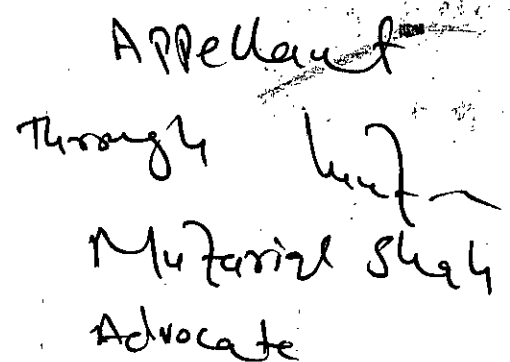 Appellant
Through
Shah
Advocate